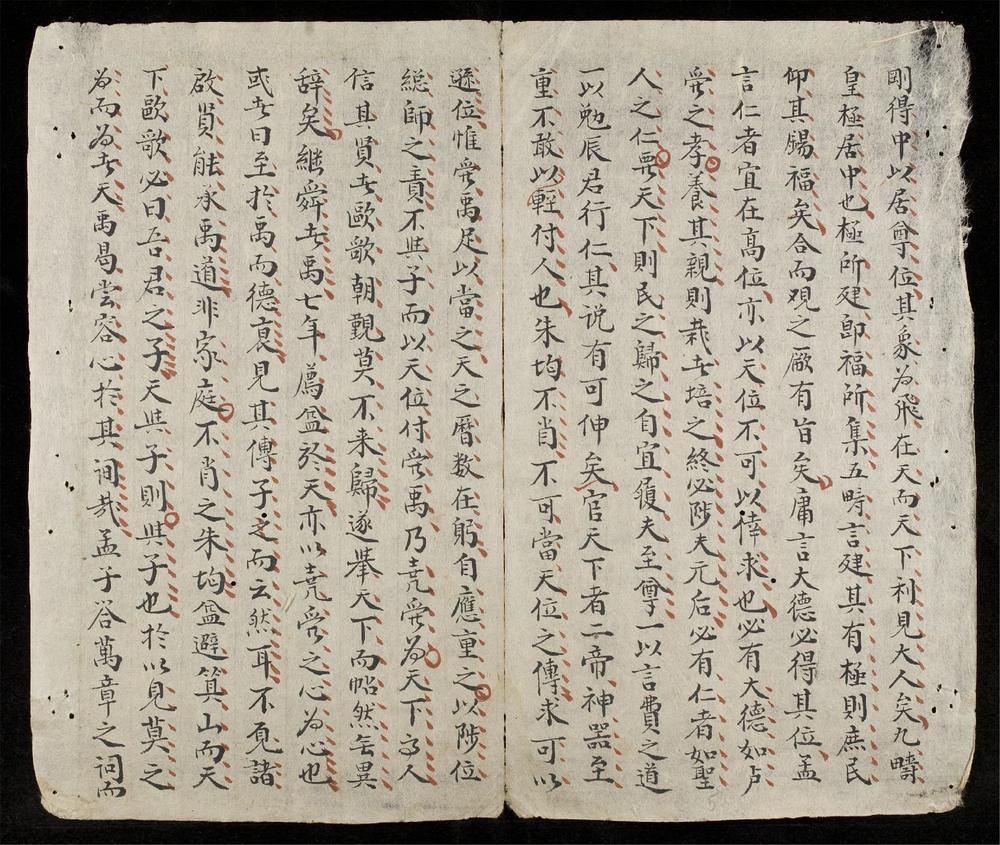 剛得中以居尊位其象為飛在天而天下利見大人矣九疇
皇極居中也極所建即福所集五疇言建其有極則庶民
仰其賜福矣合而观之厥有旨矣庸言大德必得其位孟
言仁者宜在高位亦以天位不可以倖求也必有大德如
之孝養其親則栽者培之終必陟夫元后必有仁者如聖
人之仁天下則民之歸之自宜履夫至尊一以言費之道
一以勉辰君行仁其说有可伸矣官天下者二帝神器至
重不敢以輕付人也朱均不肖不可當天位之傳求可以
遜位惟禹足以當之天之曆数在躬自應重之以陟位
総師之責不與子而以天位付禹乃堯為天下人
信其賢者歐歌朝覲莫不来歸遂举天下而帖然無異
辞矣継舜者禹七年薦益於天亦以堯之心為心也
或者曰至於禹而德衰見其傳子之而云然耳不覓諸
啟賢能承禹道非家庭不肖之朱均益避箕山而天
下歐歌必曰吾君之子天與子則與子也於以見莫之
為而為者天禹曷尝容心於其间哉孟子答萬章之问而